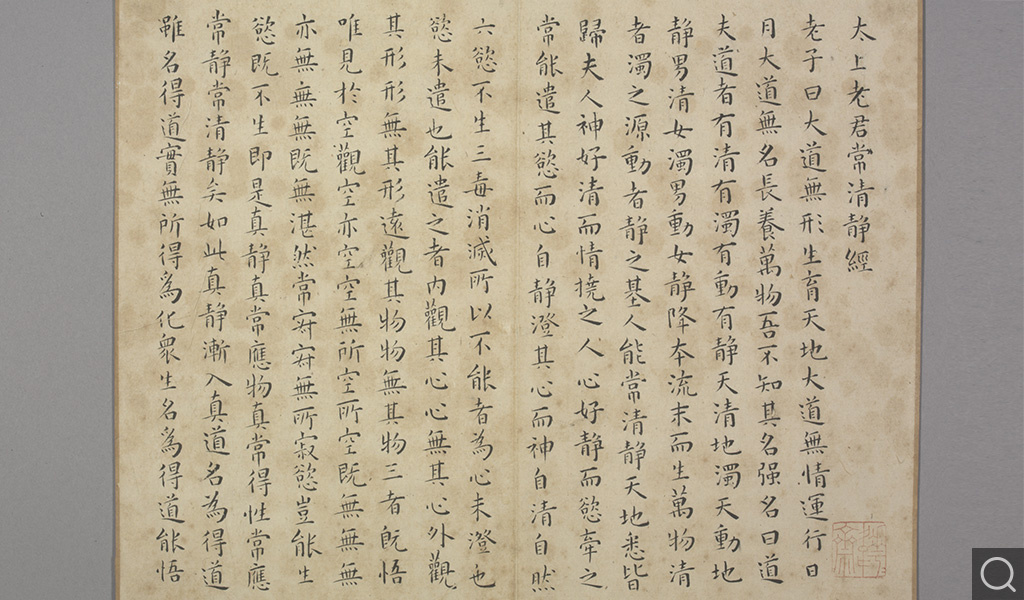 太上老君常清静經
老子曰大道無形生育天地大道無情運行日
月大道無名長養萬物吾不知其名强名曰道
夫道者有清有濁有動有静天清地濁天動地
静男清女濁男動女静降本流末而生萬物清
者濁之源動者静之基人能常清静天地悉皆
歸夫人神好清而情撓之人心好静而慾牽之
常能遣其慾而心自静澄其心而神自清自然
六慾不生三毒消滅所以不能者為心未澄也
慾未遣也能遣之者内觀其心心無其心外觀
其形形無其形遠觀其物物無其物三者既悟
唯見於空觀空亦空空無所空所空既無無無
亦無無無既無湛然常寂寂無所寂慾豈能生
慾既不生即是真静真常應物真常得性常應
常静常清静矣如此真静漸入真道名為得道
雖名得道實無所得為化衆生名為得道能悟